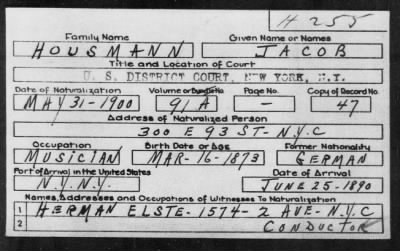 H 255
Family Name Given Name or Names
HOUSMANN JACOB
Title and Location of Court
U. S. DISTRICT COURT, NEW YORK, N.Y.
Date of Naturalization Volume or Bundle No. Page No. Copy of Record No.
MAY 31-1900 91A - 47
Address of Naturalized Person
300 E 93 ST-N.Y.C
Occupation Birth Date or Age Former Nationality
MUSICIAN MAR-16-1873 GERMAN
Port of Arrival in the United States Date of Arrival
N.Y. N.Y. JUNE 25-1890
Names, Addresses and Occupations of Witnesses To Naturalization
1 HERMAN ELSTE-1574-2 AVE-N.Y.C
2 CONDUCTOR